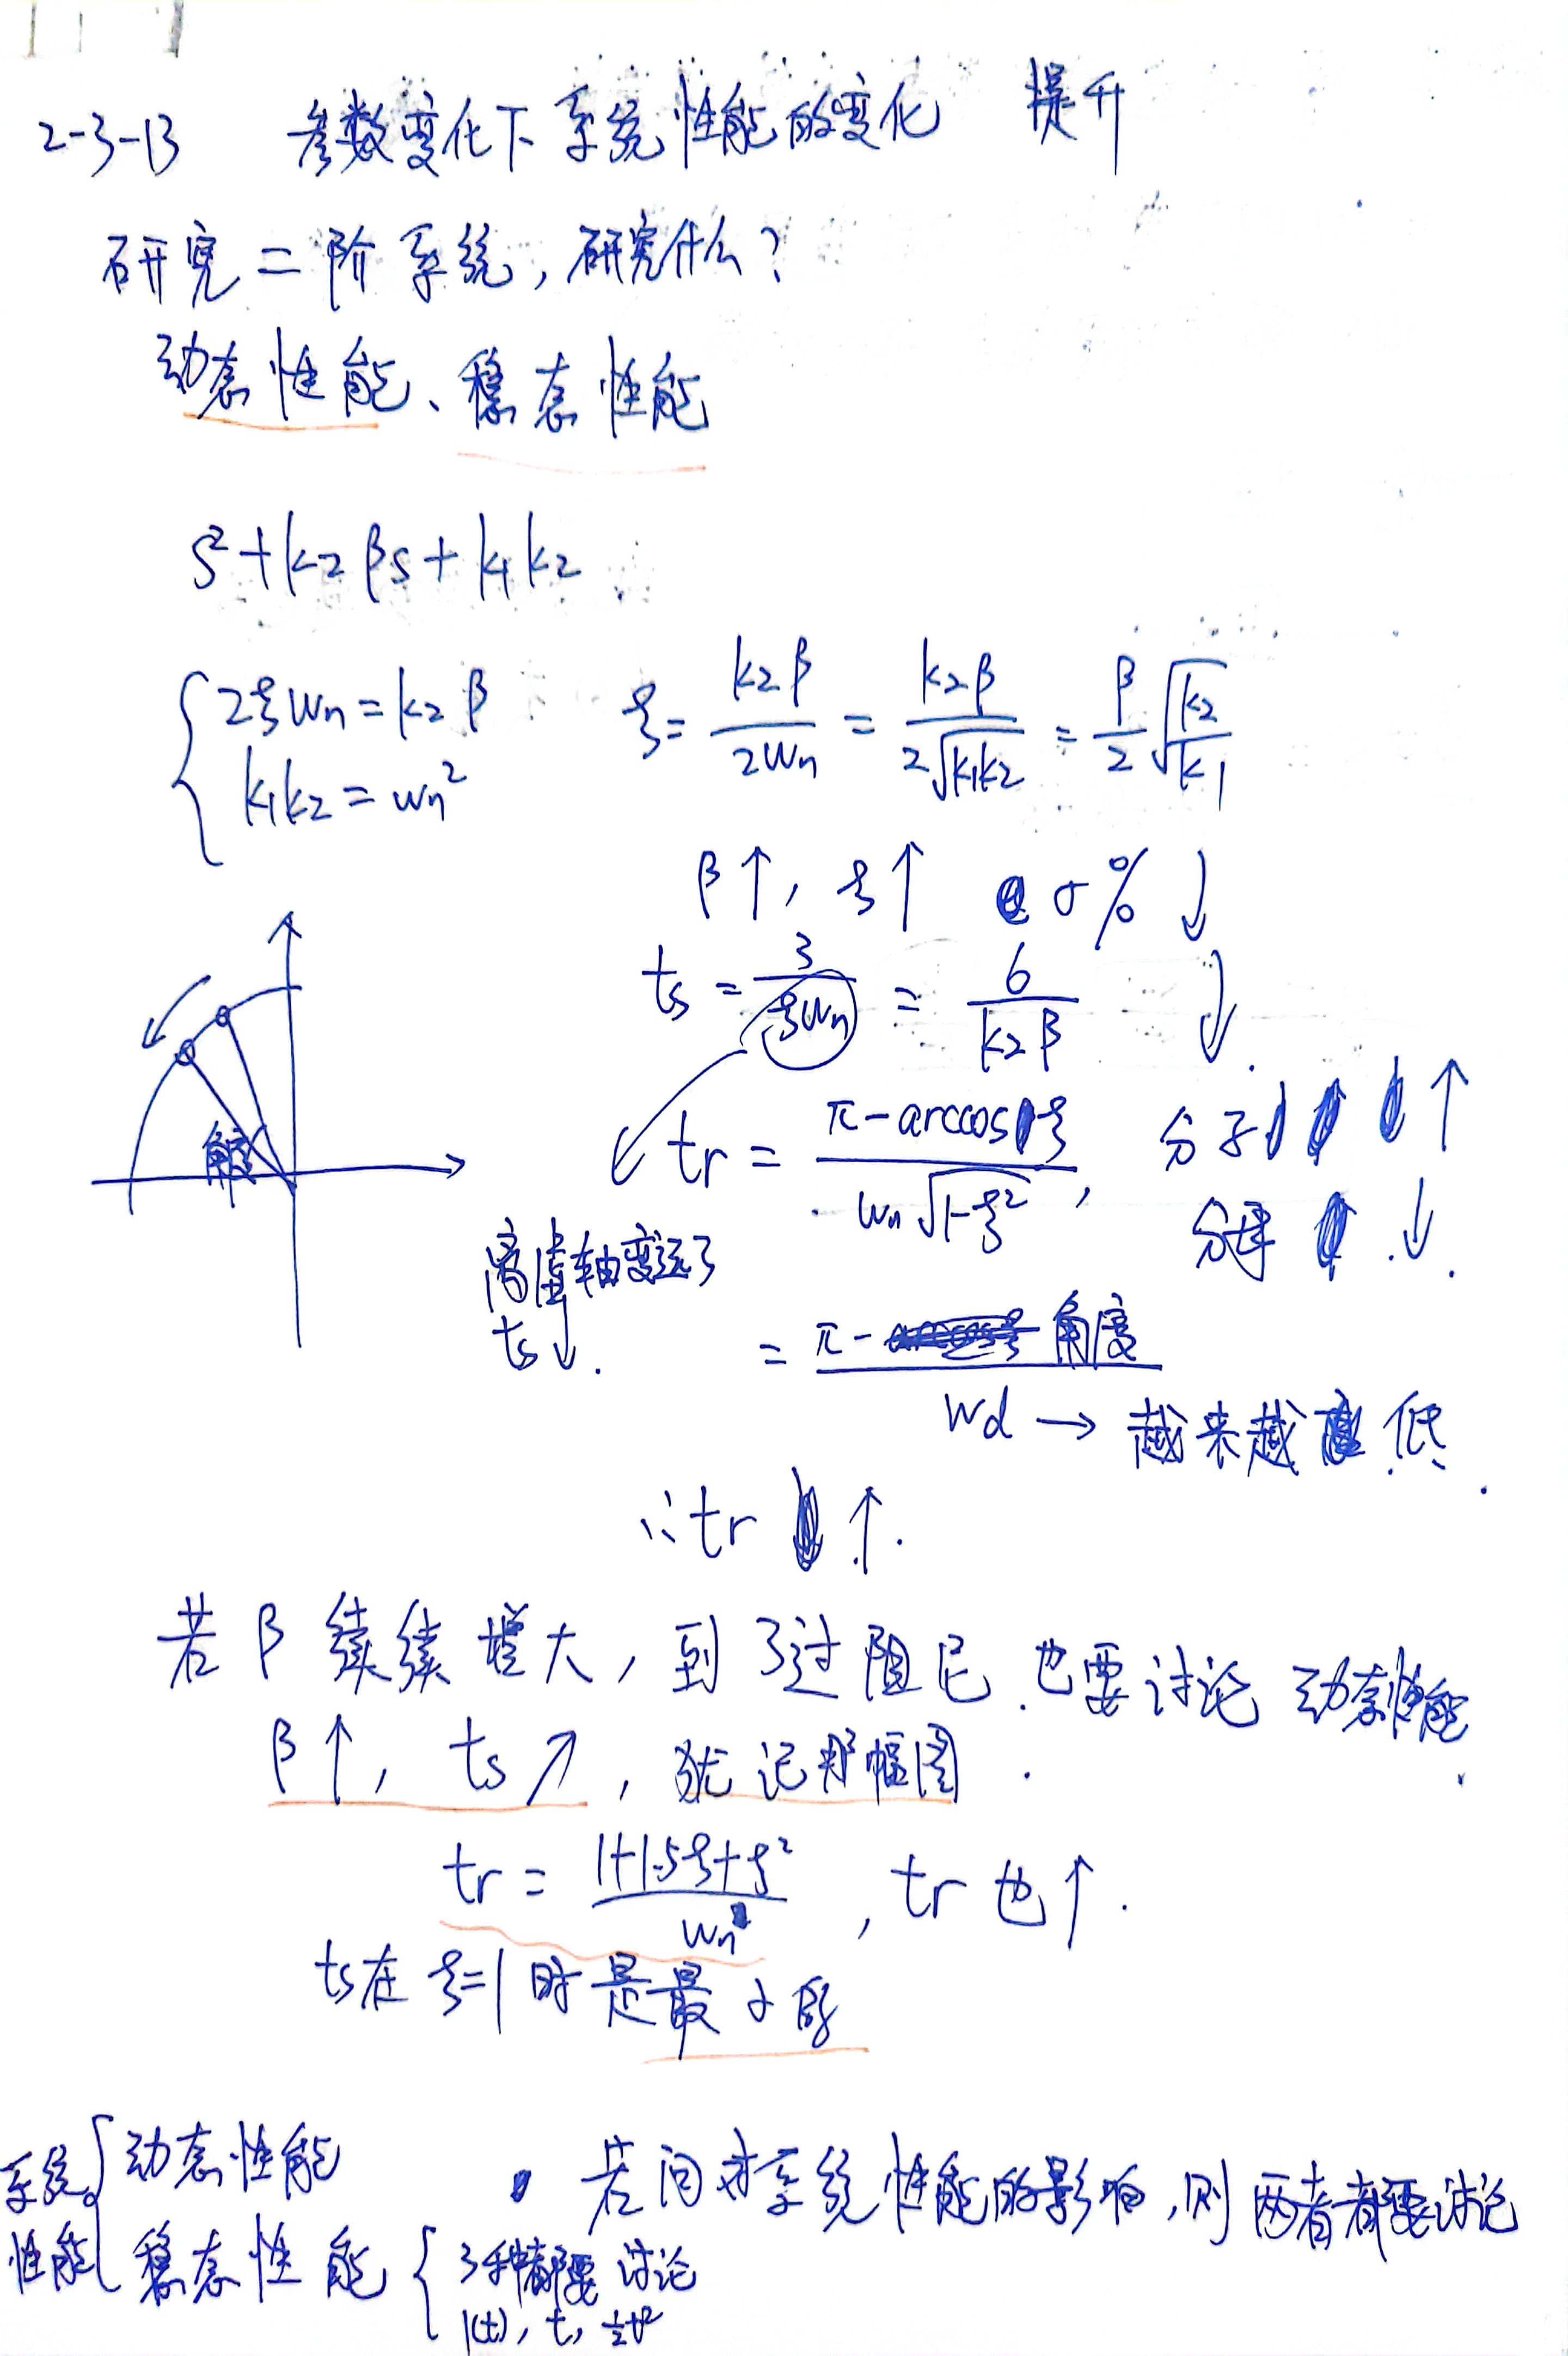 2-3-13 参数变化下系统性能的变化 提升
研究二阶系统,研究什么?
动态性能、稳态性能
s²+k2βs+k1k2.
2ξwn=k2β ξ= k2β/2wn = k2β/2√k1k2 = β/2 √k2/k1
k1k2=wn²
β↑, ξ↑ σ%↓
ts = 3/ξwn = 6/k2β ↓.
tr = π-arccosξ / wn√1-ξ², 分子↑
分母↓.
角度
离虚轴变远了
ts↓.
= π-角度 / wd → 越来越低.
∴tr ↑.
若β续续增大, 到了过阻尼.也要讨论动态性能.
β↑, ts↗, 犹记那幅图.
tr = 1+1.5ξ+ξ² / wn, tr也↑.
ts在ξ=1时是最小的
系统性能 动态性能
稳态性能 3种都要讨论
1(t), t, ½t²
若问对系统性能的影响,则两者都要讨论